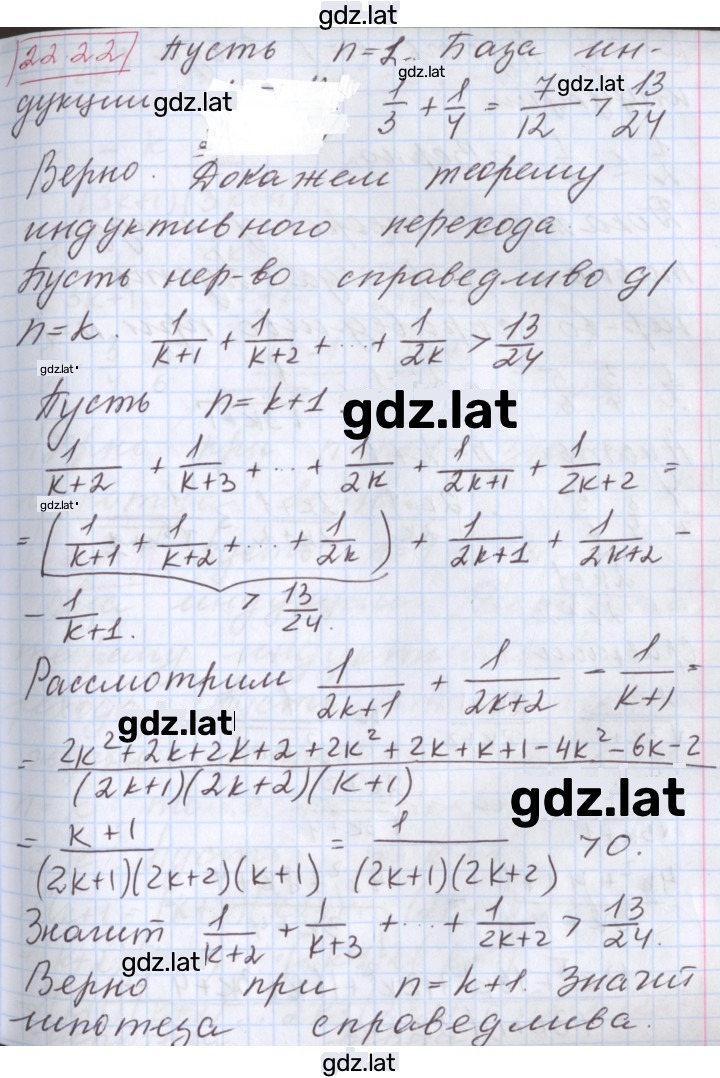 gdz.lat
22.22 Пусть n=2. База ин-
gdz.lat
дукции gdz.lat 1/3 + 1/4 = 7/12 > 13/24 gdz.lat
Верно. Докажем теорему
индуктивного перехода.
Пусть нер-во справедливо д/
n=k. 1/(k+1) + 1/(k+2) + ... + 1/2k > 13/24
gdz.lat
Пусть n=k+1 gdz.lat
1/(k+2) + 1/(k+3) + ... + 1/2k + 1/(2k+1) + 1/(2k+2) =
gdz.lat
= (1/(k+1) + 1/(k+2) + ... + 1/2k) + 1/(2k+1) + 1/(2k+2) -
- 1/(k+1). > 13/24.
Рассмотрим 1/(2k+1) + 1/(2k+2) - 1/(k+1) =
gdz.lat
= (2k²+2k+2k+2+2k²+2k+k+1-4k²-6k-2)/((2k+1)(2k+2)(k+1))
gdz.lat
= (k+1)/((2k+1)(2k+2)(k+1)) = 1/((2k+1)(2k+2)) >0.
Значит 1/(k+2) + 1/(k+3) + ... + 1/(2k+2) > 13/24.
gdz.lat
Верно при n=k+1. Значит
гипотеза справедлива.
gdz.lat